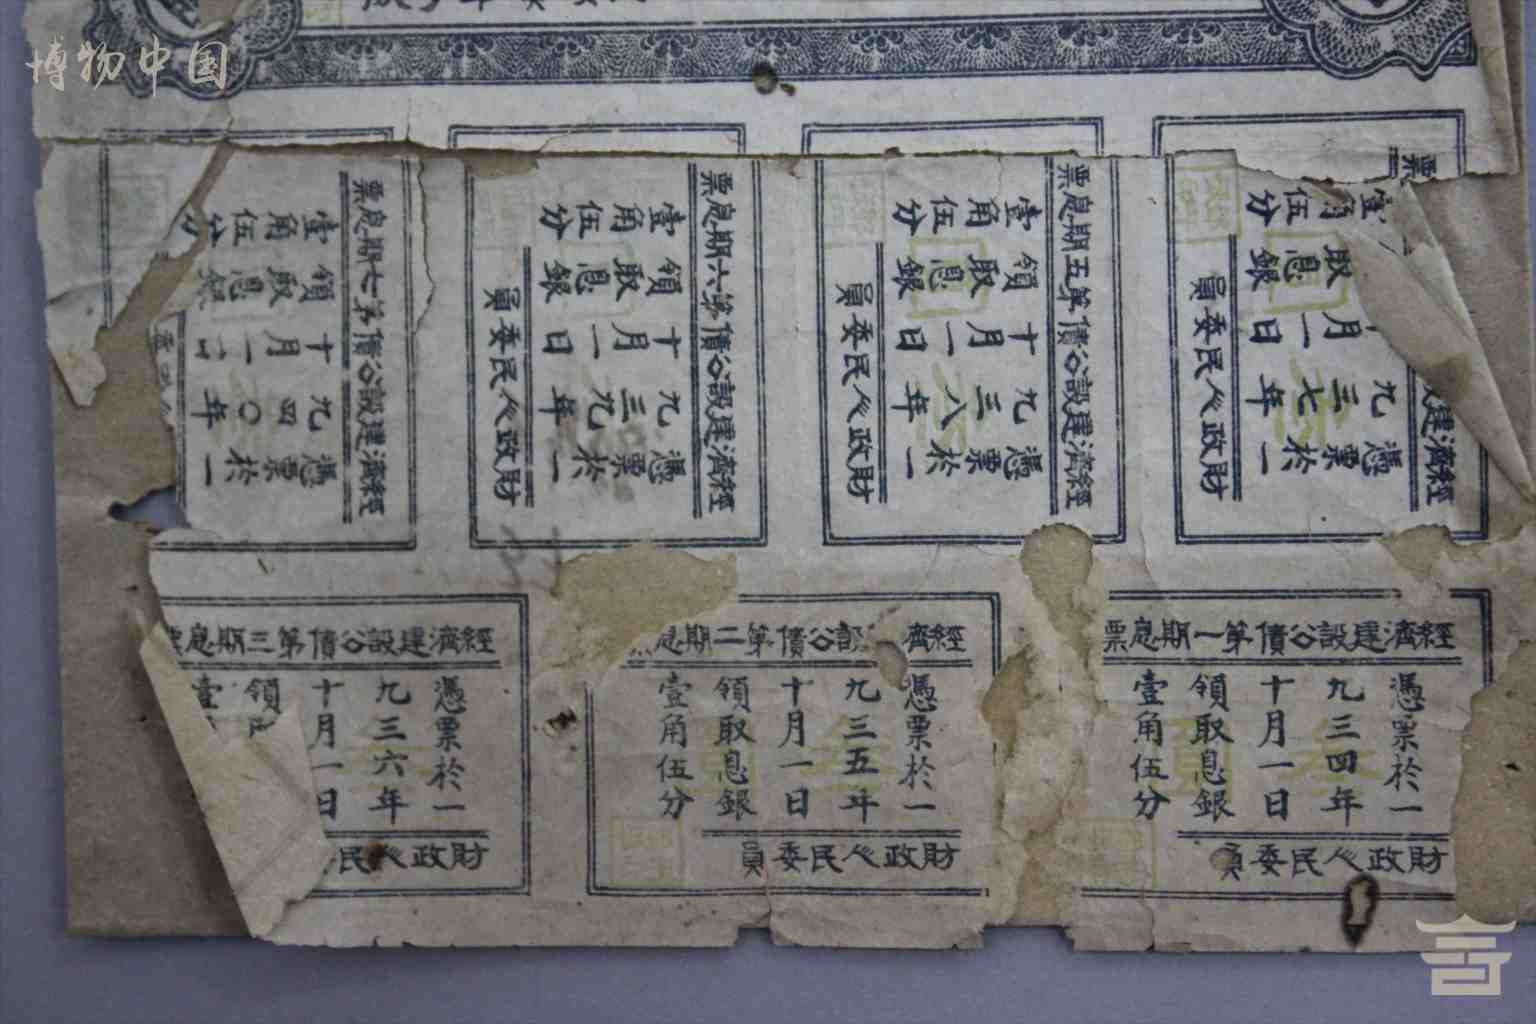 博物中国
經濟建設公債第七期息票
憑票於一
九四〇年
十月一日
領取息銀
壹角伍分
經濟建設公債第六期息票
憑票於一
九三九年
十月一日
領取息銀
壹角伍分
財政人民委員
經濟建設公債第五期息票
憑票於一
九三八年
十月一日
領取息銀
壹角伍分
財政人民委員
經濟建設
票
憑票於一
九三七年
十月一日
取息銀
壹角伍分
財政人民委員
經濟建設公債第三期息
憑票於一
九三六年
十月一日
領
壹
財政人民
經濟 設公債第二期息票
憑票於一
九三五年
十月一日
領取息銀
壹角伍分
財政人民委員
經濟建設公債第一期息票
憑票於一
九三四年
十月一日
領取息銀
壹角伍分
財政人民委員